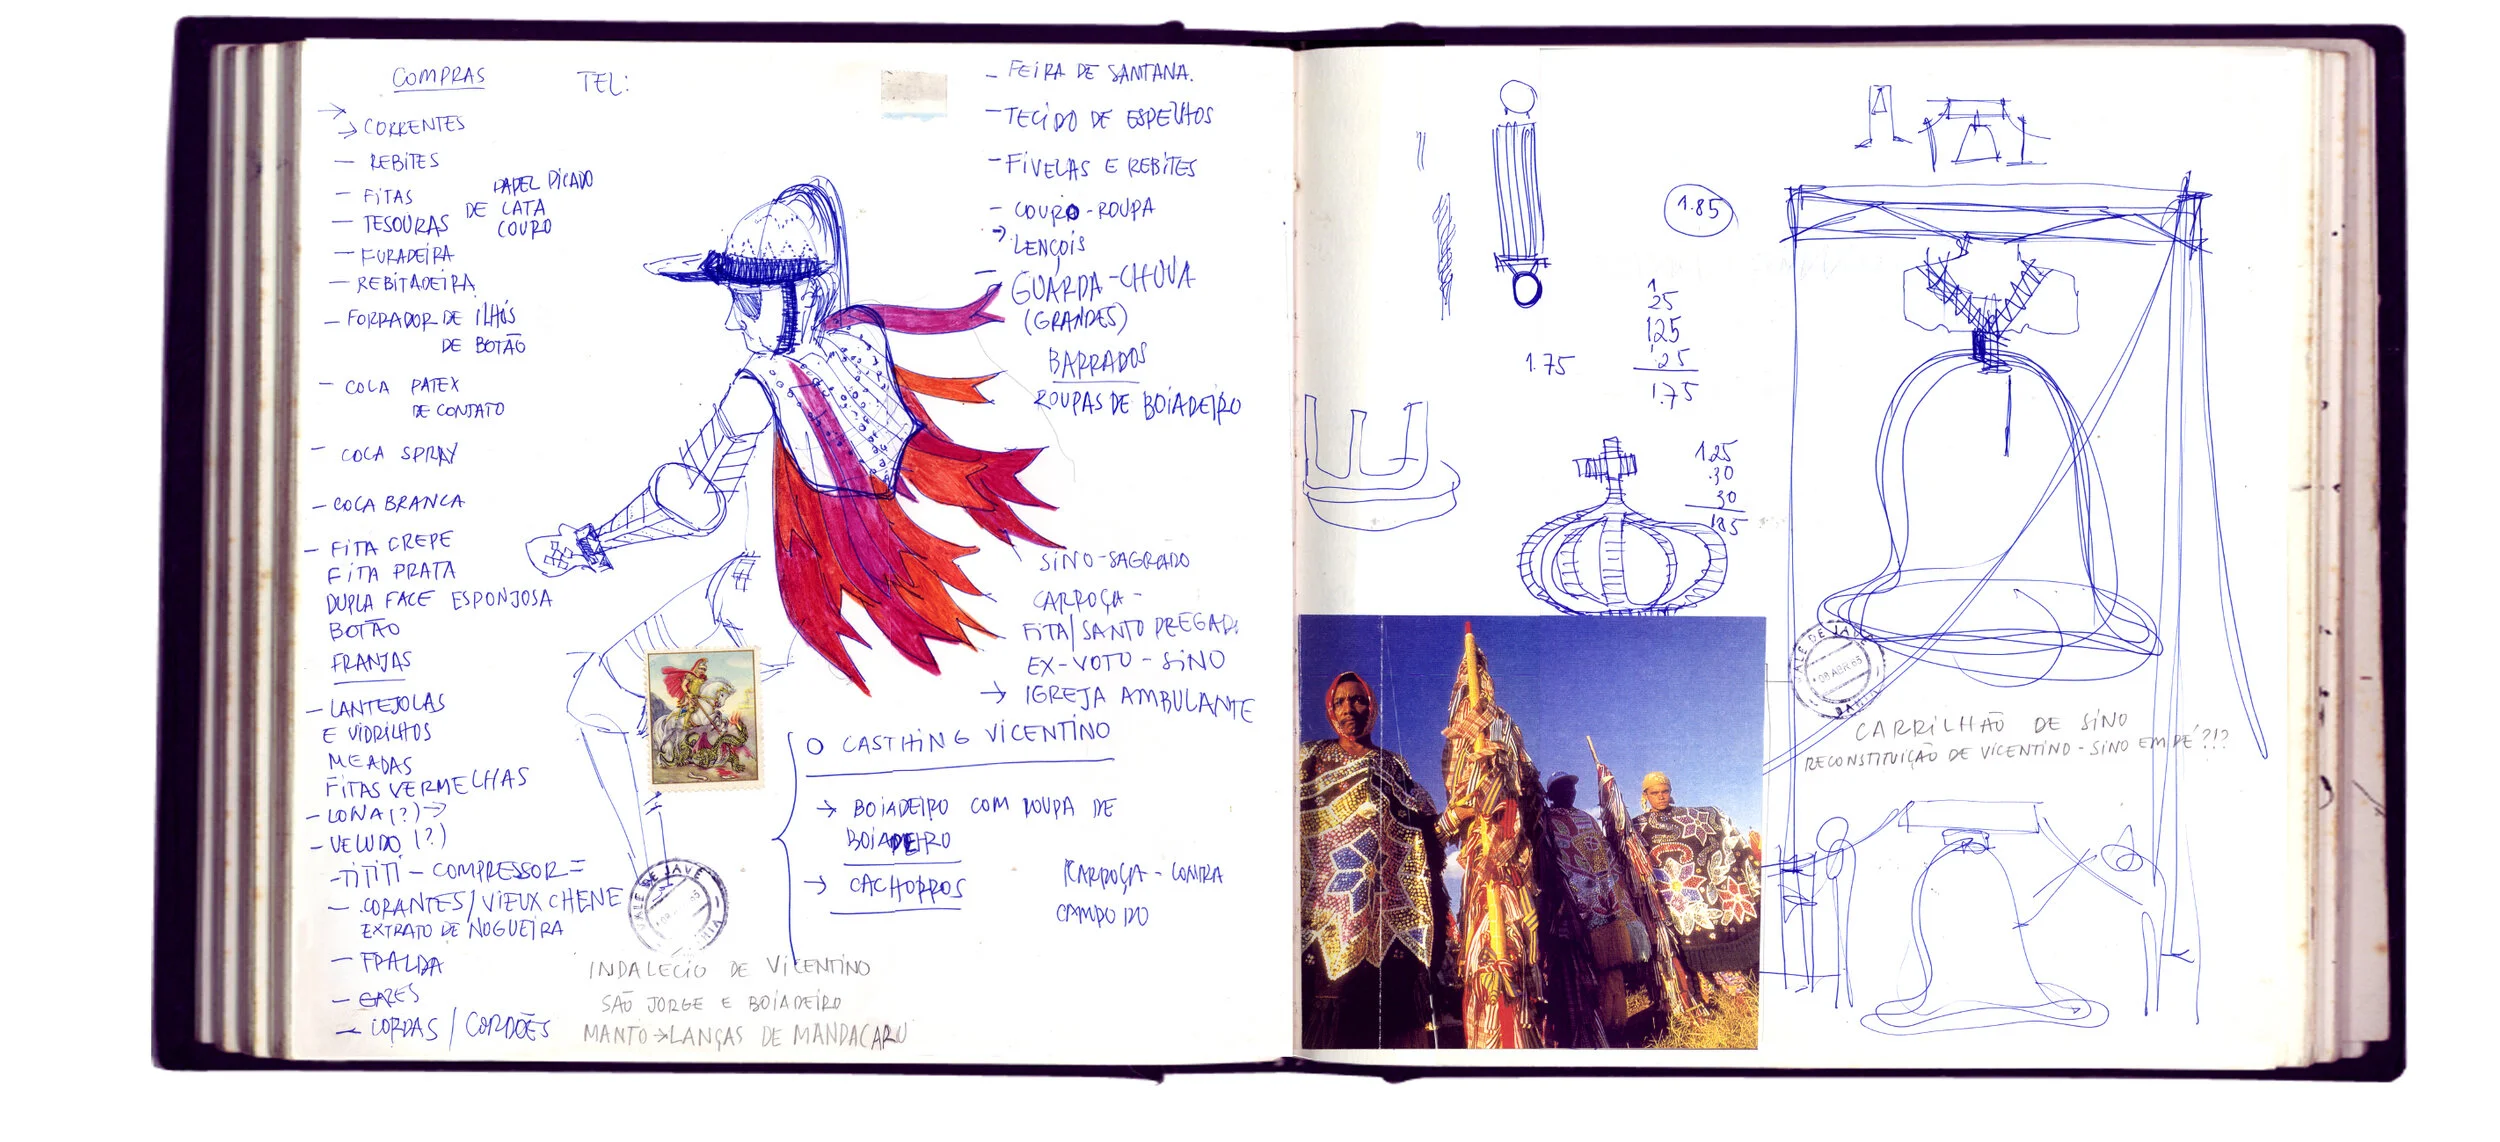 COMPRAS
TEL:
→
→ CORRENTES
— REBITES
— FITAS
PAPEL PICADO
DE LATA
COURO
— TESOURAS
— FURADEIRA
— REBITADEIRA
— FORRADOR DE ILHÓS
DE BOTÃO
— COLA PATEX
DE CONTATO
— COLA SPRAY
— COLA BRANCA
— FITA CREPE
FITA PRATA
DUPLA FACE ESPONJOSA
BOTÃO
FRANJAS
— LANTEJOLAS
E VIDRILHOS
MEADAS
FITAS VERMELHAS
— LONA (?) →
— VELUDO (?)
— TITITI — COMPRESSOR =
— CORANTES / VIEUX CHENE
EXTRATO DE NOGUEIRA
— FRALDA
— GAZES
— CORDAS / CORDÕES
— FEIRA DE SANTANA.
— TECIDO DE ESPELHOS
— FIVELAS E REBITES
— COURO - ROUPA
→ LENÇÓIS
— GUARDA-CHUVA
(GRANDES)
BARRADOS
ROUPAS DE BOIADEIRO
SINO - SAGRADO
CARROÇA -
FITA / SANTO PREGADO
EX-VOTO - SINO
→ IGREJA AMBULANTE
O CASTHING VICENTINO
→ BOIADEIRO COM ROUPA DE
BOIADEIRO
→ CACHORROS
CARROÇA - CONTRA
CAMPO DO
VALE DE JAVÉ
INDALECIO DE VICENTINO
SÃO JORGE E BOIADEIRO
MANTO → LANÇAS DE MANDACARU
1.85
1
25
125
25
1.75
1.75
1.25
.30
30
1.85
VALE DE JAVÉ
08 ABR 65
BAHIA
CARRILHÃO DE SINO
RECONSTITUIÇÃO DE VICENTINO - SINO EM PÉ?!?